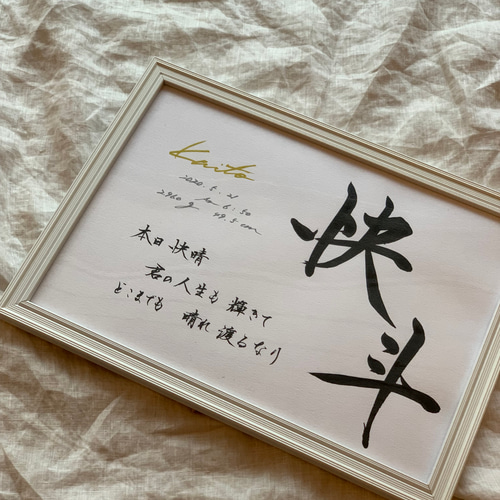 快斗
Kaito
2020.5.21
am 6:50
2960g 49.5cm
本日快晴
君の人生も 輝きて
どこまでも 晴れ渡るなり